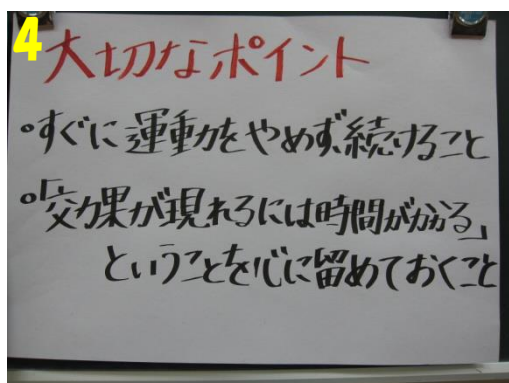 4
大切なポイント
・すぐに運動をやめず、続けること
・「効果が現れるには時間がかかる」
ということを心に留めておくこと